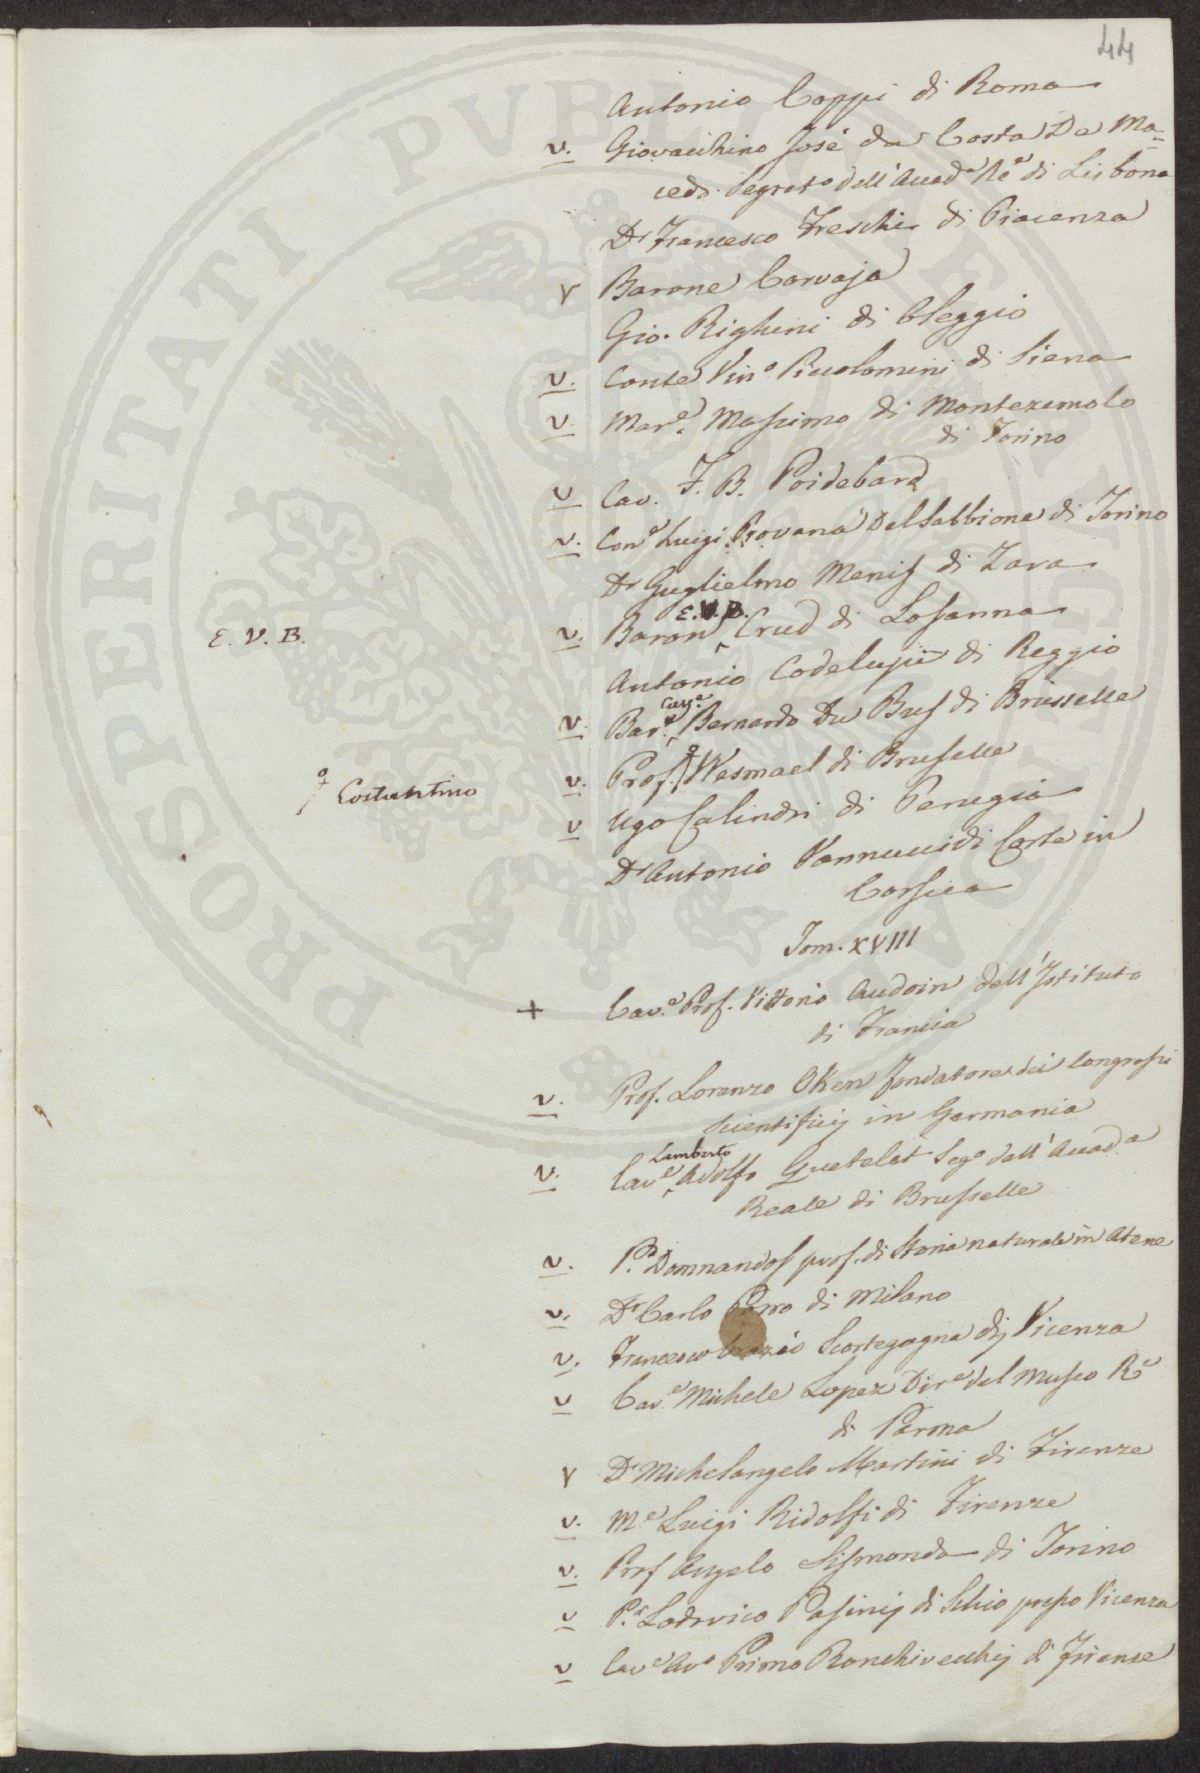 44
Antonio Coppi di Roma
v. Giovacchino José da Costa Da Ma=
cedo Segret.o dell'Accad.a Re.e di Lisbona
Dr Francesco Freschi di Piacenza
v Barone Corvaja
Gio. Righini di Oleggio
v. Conte Vin.o Piccolomini di Siena
v. Mar.e Massimo di Montezemolo
di Torino
v Cav. F. B. Poidebard
v. Con.e Luigi Provana Del Sabbione di Torino
Dr Guglielmo Menis di Zara
E. V. B.
E. V. B. v. Baron Crud di Losanna
Antonio Codelupi di Reggio
Cav.e
v. Bar.e Bernardo Du Bus di Brusselle
Costantino v. Prof. Wesmael di Brusselle
v Ugo Calindri di Perugia
Dr Antonio Vannucci di Corte in
Corsica
Tom. XVIII
+ Cav.e Prof. Vittorio Audoin dell'Istituto
di Francia
v. Prof. Lorenzo Oken fondatore dei congressi
scientificij in Germania
Lamberto
v. Cav.e Adolfo Quetelet Seg.o dell'Accad.a
Reale di Brusselle
v. Domnandos prof. di Storia naturale in Atene
v. Dr Carlo Porro di Milano
v. Francesco Orazio Scortegagna di Vicenza
v Cav.e Michele Lopez Dir.e del Museo R.e
di Parma
v Dr Michelangelo Martini di Firenze
v. M.e Luigi Ridolfi di Firenze
v. Prof Angelo Sismonda di Torino
v P.r Lodovico Pasinij di Schio presso Vicenza
v Cav.e Av.o Primo Ronchivecchij di Firenze
PROSPERITATI PVBLICAE AVGENDAE